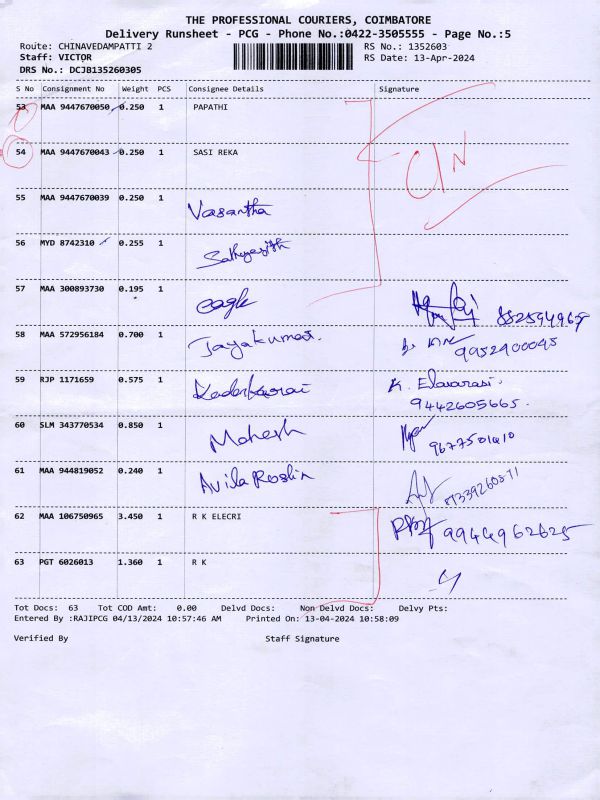 THE PROFESSIONAL COURIERS, COIMBATORE
Delivery Runsheet - PCG - Phone No.:0422-3505555 - Page No.:5
Route: CHINAVEDAMPATTI 2 RS No.: 1352603
Staff: VICTOR RS Date: 13-Apr-2024
DRS No.: DCJB135260305
S No Consignment No Weight PCS Consignee Details Signature
53 MAA 9447670050 0.250 1 PAPATHI
54 MAA 9447670043 0.250 1 SASI REKA
55 MAA 9447670039 0.250 1 Vasantha
56 MYD 8742310 0.255 1
57 MAA 300893730 0.195 1 eagle
58 MAA 572956184 0.700 1 Jayakumar. 9952900095
59 RJP 1171659 0.575 1 K. Elavarasi.
9442605665.
60 SLM 343770534 0.850 1 Mahesh
61 MAA 944819052 0.240 1 Avila Roslin
62 MAA 106750965 3.450 1 R K ELECRI 9944962625
63 PGT 6026013 1.360 1 R K
Tot Docs: 63 Tot COD Amt: 0.00 Delvd Docs: Non Delvd Docs: Delvy Pts:
Entered By :RAJIPCG 04/13/2024 10:57:46 AM Printed On: 13-04-2024 10:58:09
Verified By Staff Signature